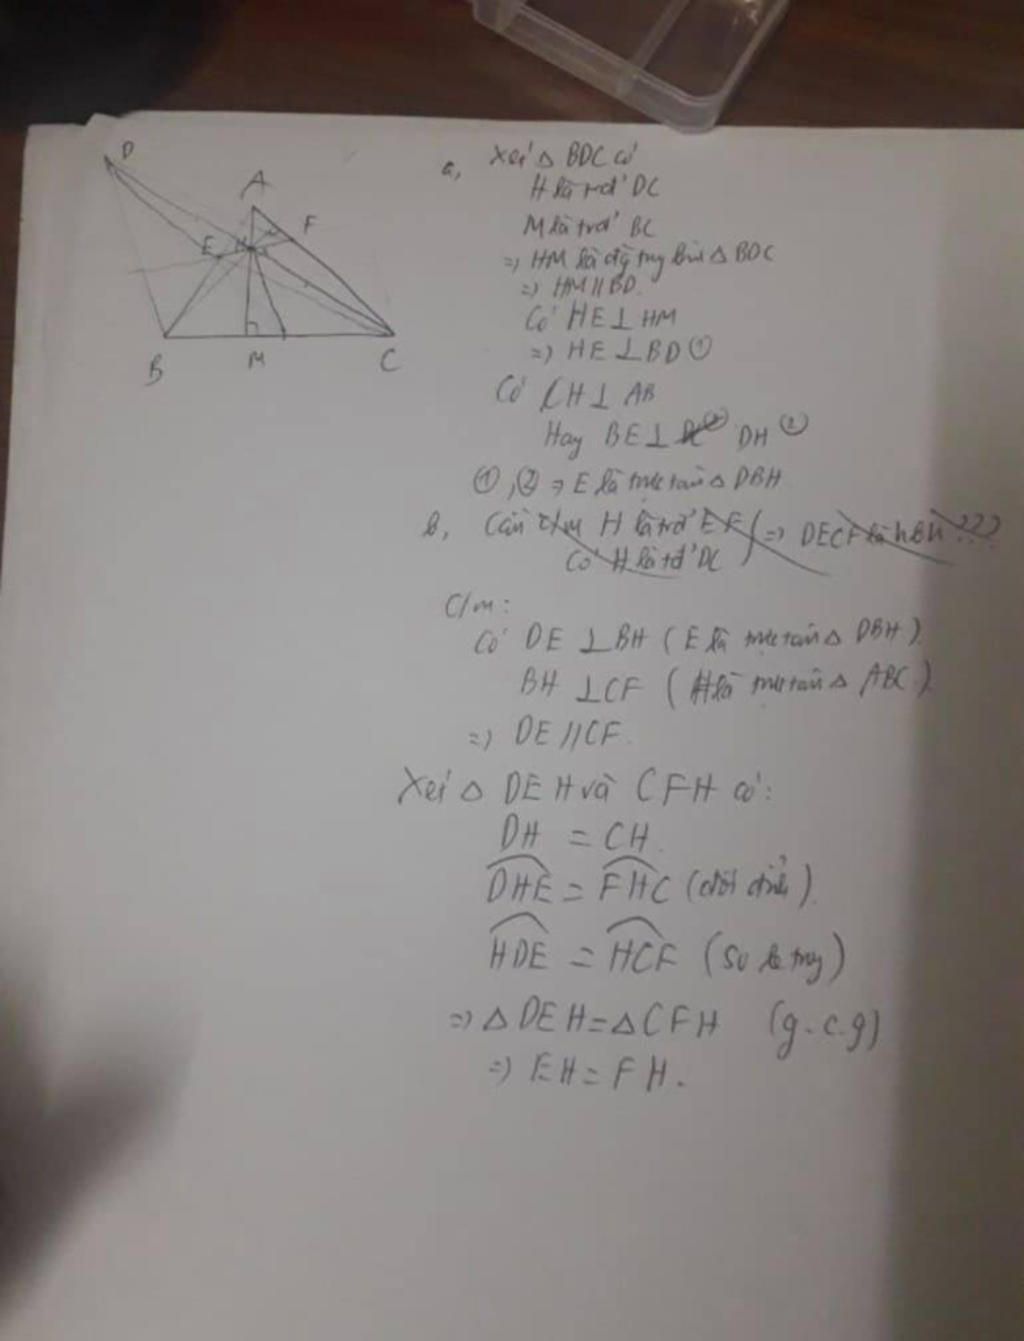 D
A
F
E H
B M C
a, Xét △ BDC có
H là trđ' DC
M là trđ' BC
=> HM là đg bình △ BDC
=> HM // BD.
Có HE ⊥ HM
=> HE ⊥ BD ①
Có CH ⊥ AB
Hay BE ⊥ DH ②
①, ② => E là trực tâm △ DBH
b, Cần c/m H là trđ' EF
Có H là tđ' DC } => DECF là hbh ???
C/m:
Có DE ⊥ BH ( E là trực tâm △ DBH ).
BH ⊥ CF ( H là trực tâm △ ABC )
=> DE // CF.
Xét △ DEH và CFH có:
DH = CH.
DHE = FHC (đối đỉnh).
HDE = HCF (so le trg)
=> △ DEH = △ CFH (g.c.g)
=> EH = FH.